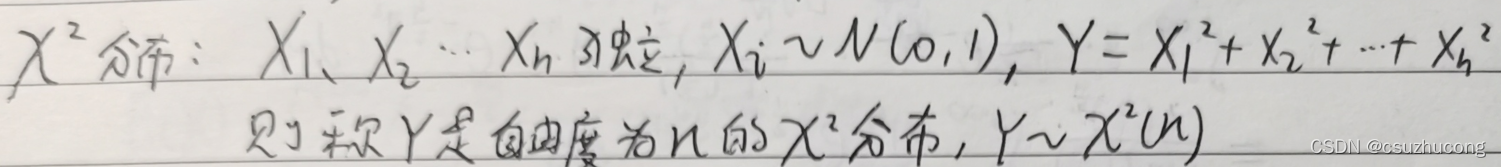 χ²分布: X₁、X₂ … Xₙ 独立, Xᵢ ~ N(0,1), Y = X₁² + X₂² + … + Xₙ²
则称Y是自由度为n的χ²分布, Y ~ χ²(n)
CSDN @csuzhucong